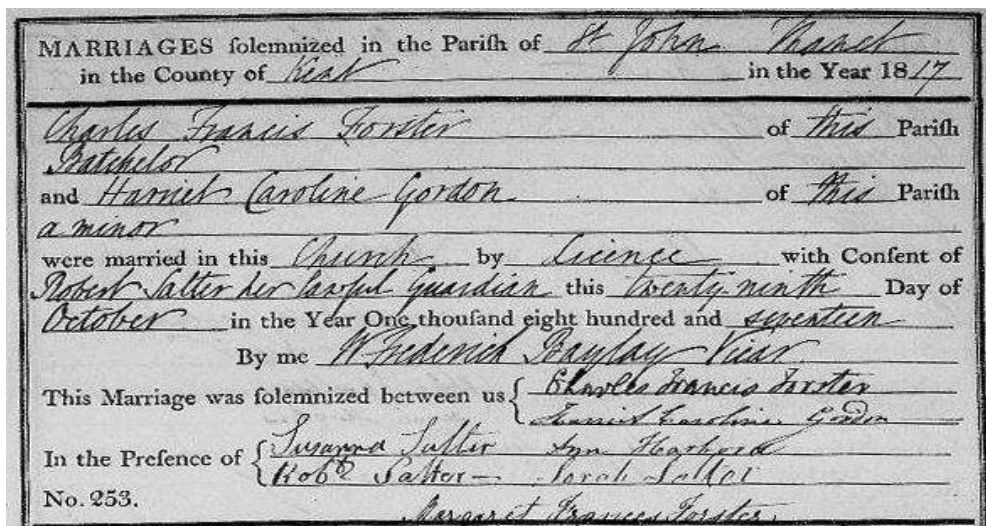 MARRIAGES ſolemnized in the Pariſh of St John Thanet
in the County of Kent in the Year 1817
Charles Francis Forster of this Pariſh
Batchelor
and Harriet Caroline Gordon of this Pariſh
a minor
were married in this Church by Licence with Conſent of
Robert Salter her lawful Guardian this twenty ninth Day of
October in the Year One thouſand eight hundred and seventeen
By me W Frederick Baylay Vicar
This Marriage was ſolemnized between us { Charles Francis Forster
Harriet Caroline Gordon
In the Preſence of { Susanna Salter
Robt Salter Sarah Salter
No. 253.
Margaret Frances Forster